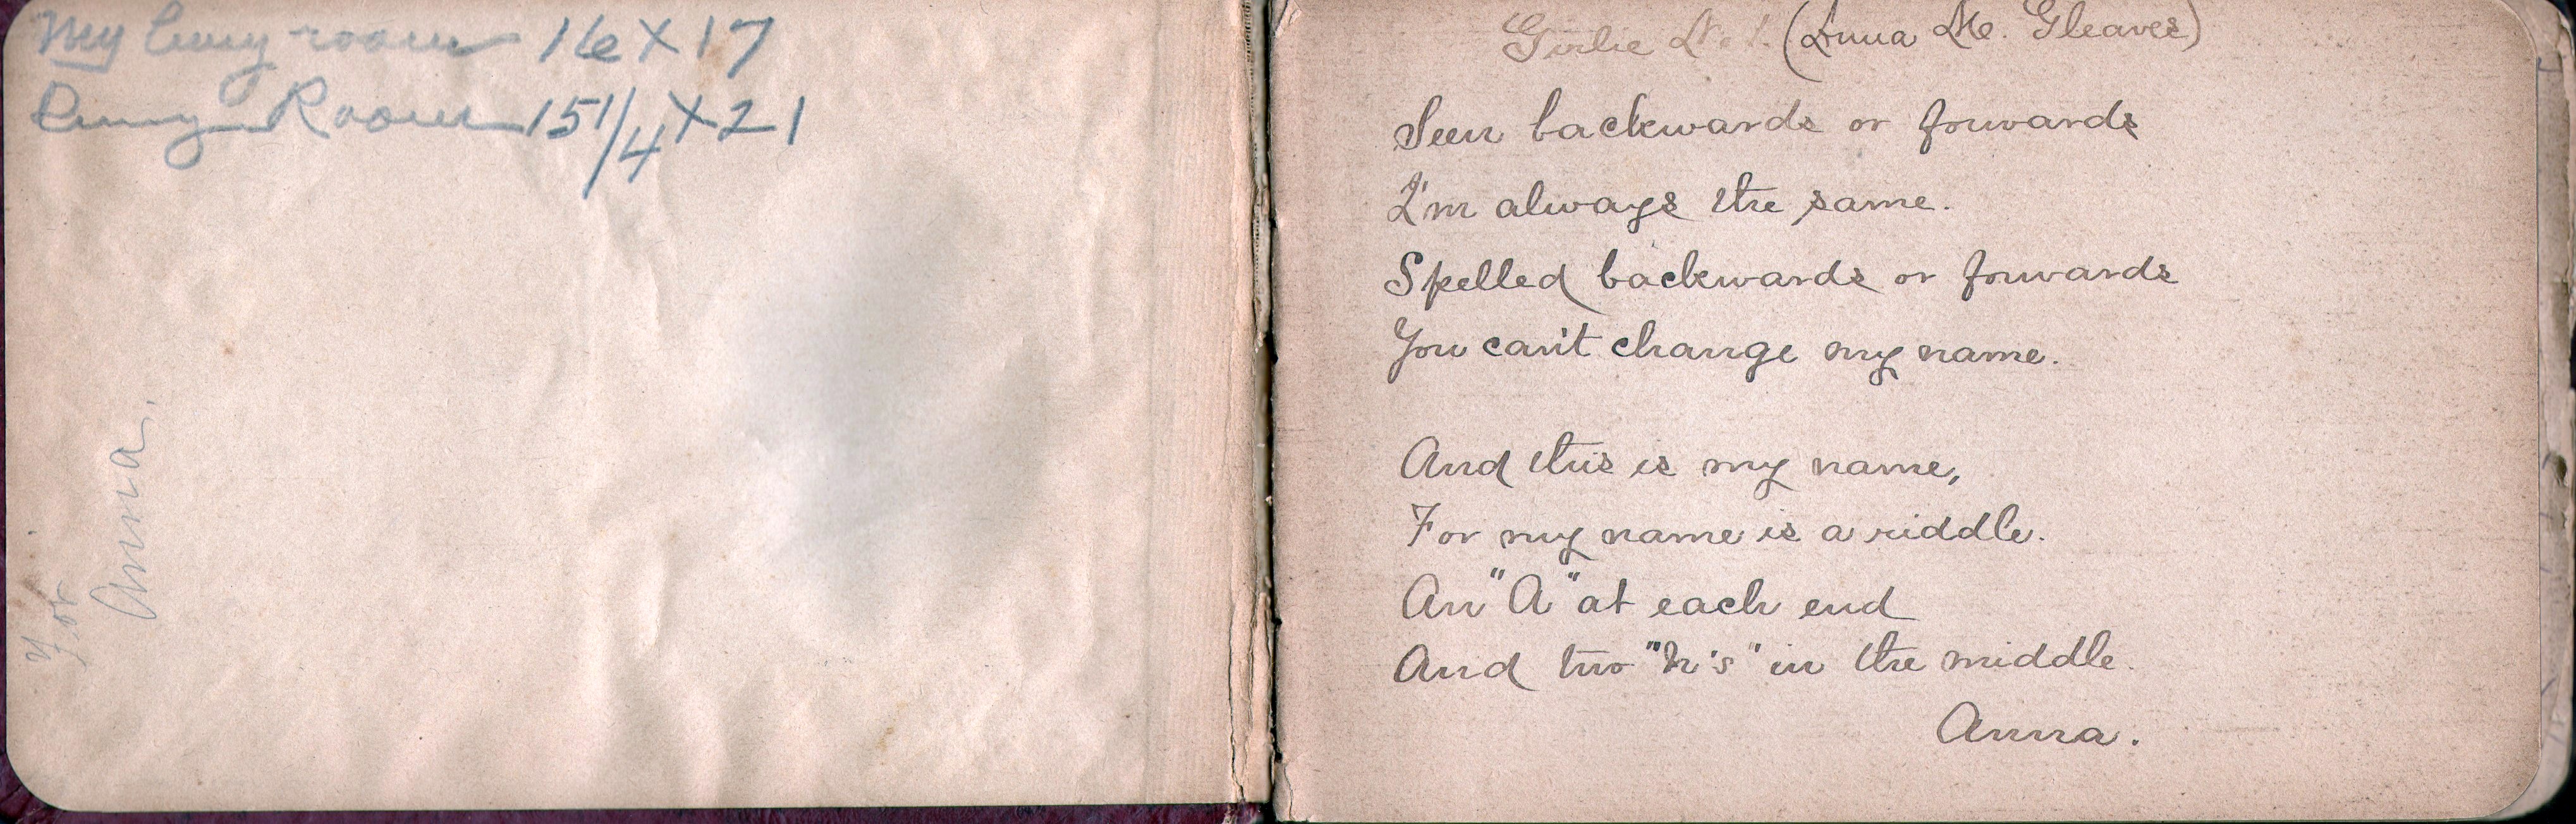 My living room 16 X 17
Living Room 15 1/4 X 21
For
Anna.
Girlie No 1. (Anna Mc. Gleaves)
Seen backwards or forwards
I'm always the same.
Spelled backwards or forwards
You can't change my name.
And this is my name,
For my name is a riddle.
An "A" at each end
And two "n's" in the middle.
Anna.